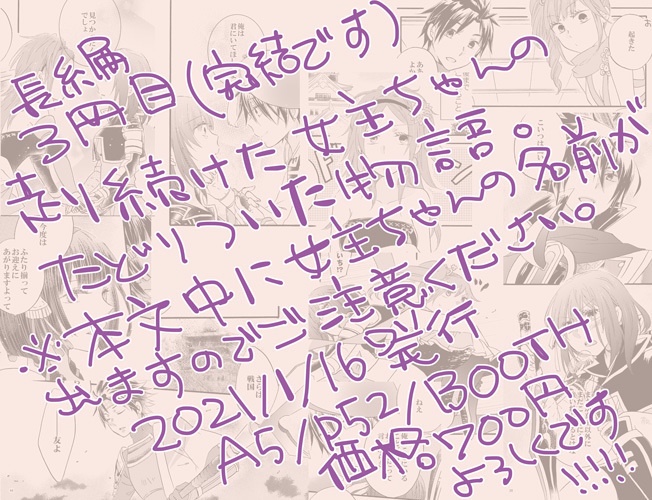 長編
3冊目(完結です)
走り続けた女主ちゃんの
たどりついた物語。
※本文中に女主ちゃんの名前が
出ますのでご注意ください。
2021/1/16発行
A5/P52/1300TH
価格。700円
よろしくです!!!!!
見つかった
でしょ
俺は
君にいてほ
起きた
こいつは
今度は
ふたり揃って
お迎えに
あがりますよって
いち!?
さらば
戦国
友よ
ねえ